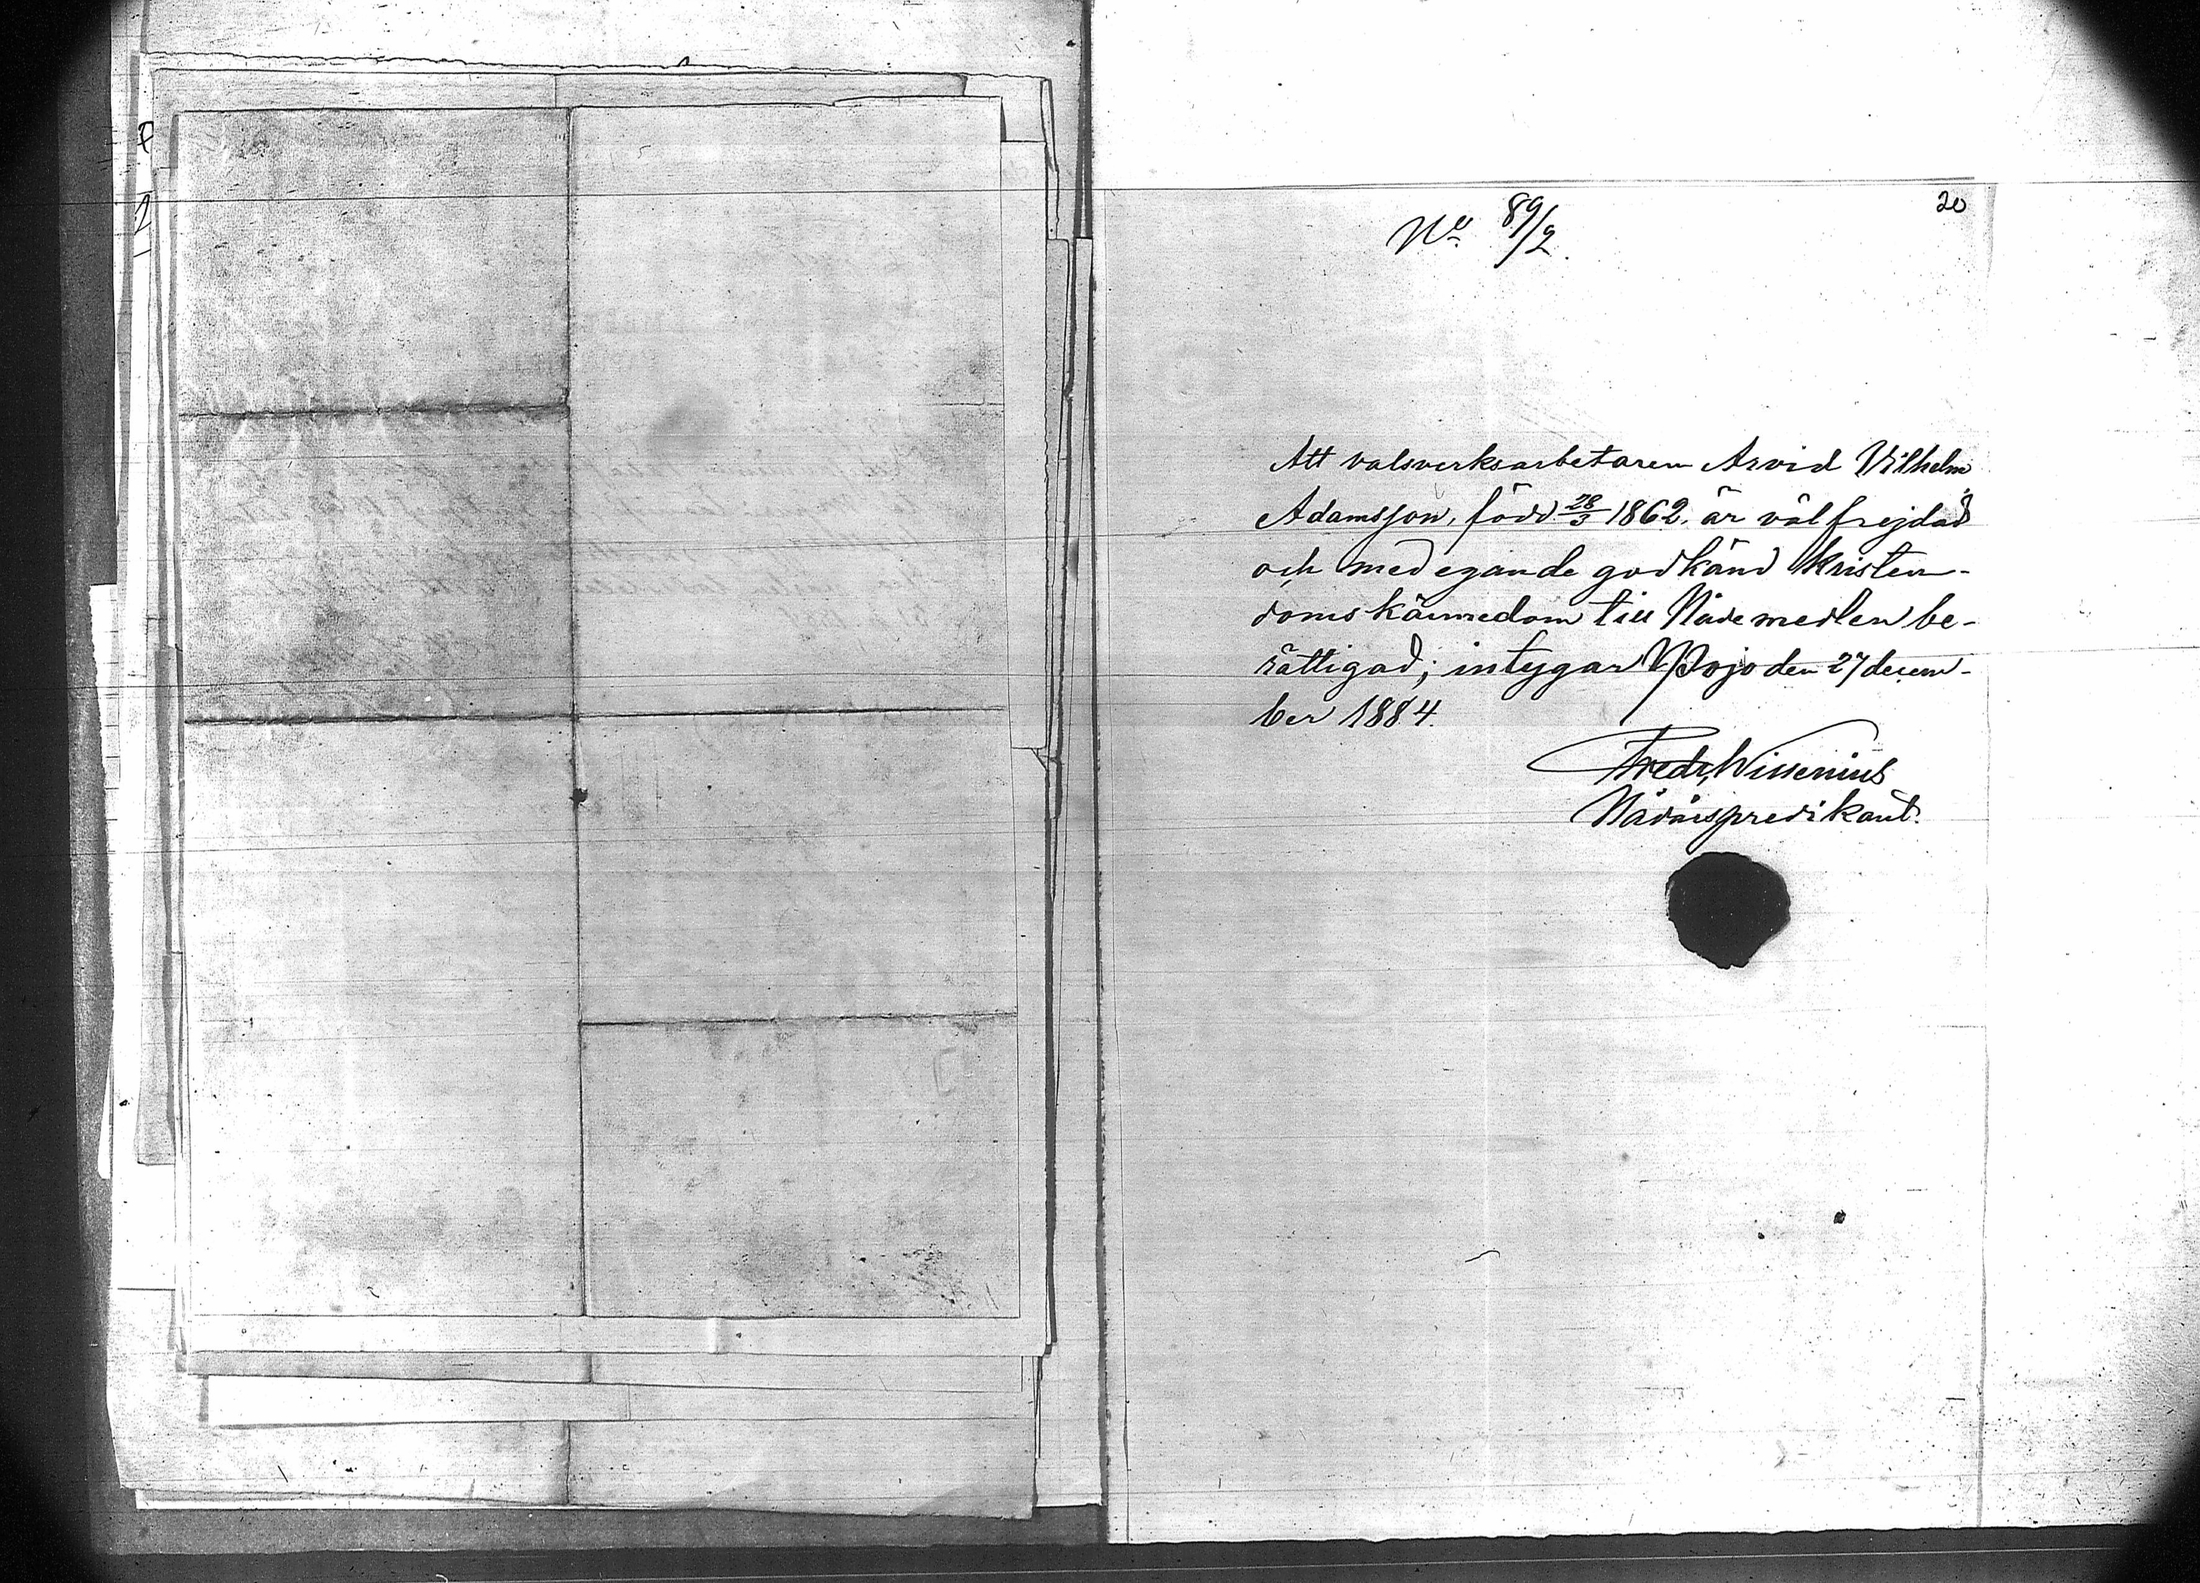 20
No 89/2.
Att valsverksarbetaren Arvid Vilhelm
Adamsson, född 28/3 1862, är välfrejdad
och med egande godkänd kristen-
domskännedom till Nådemedlen be-
rättigad; intygar Pojo den 27 decem-
ber 1884.
Fredr. Wissenius
Nådårspredikant.